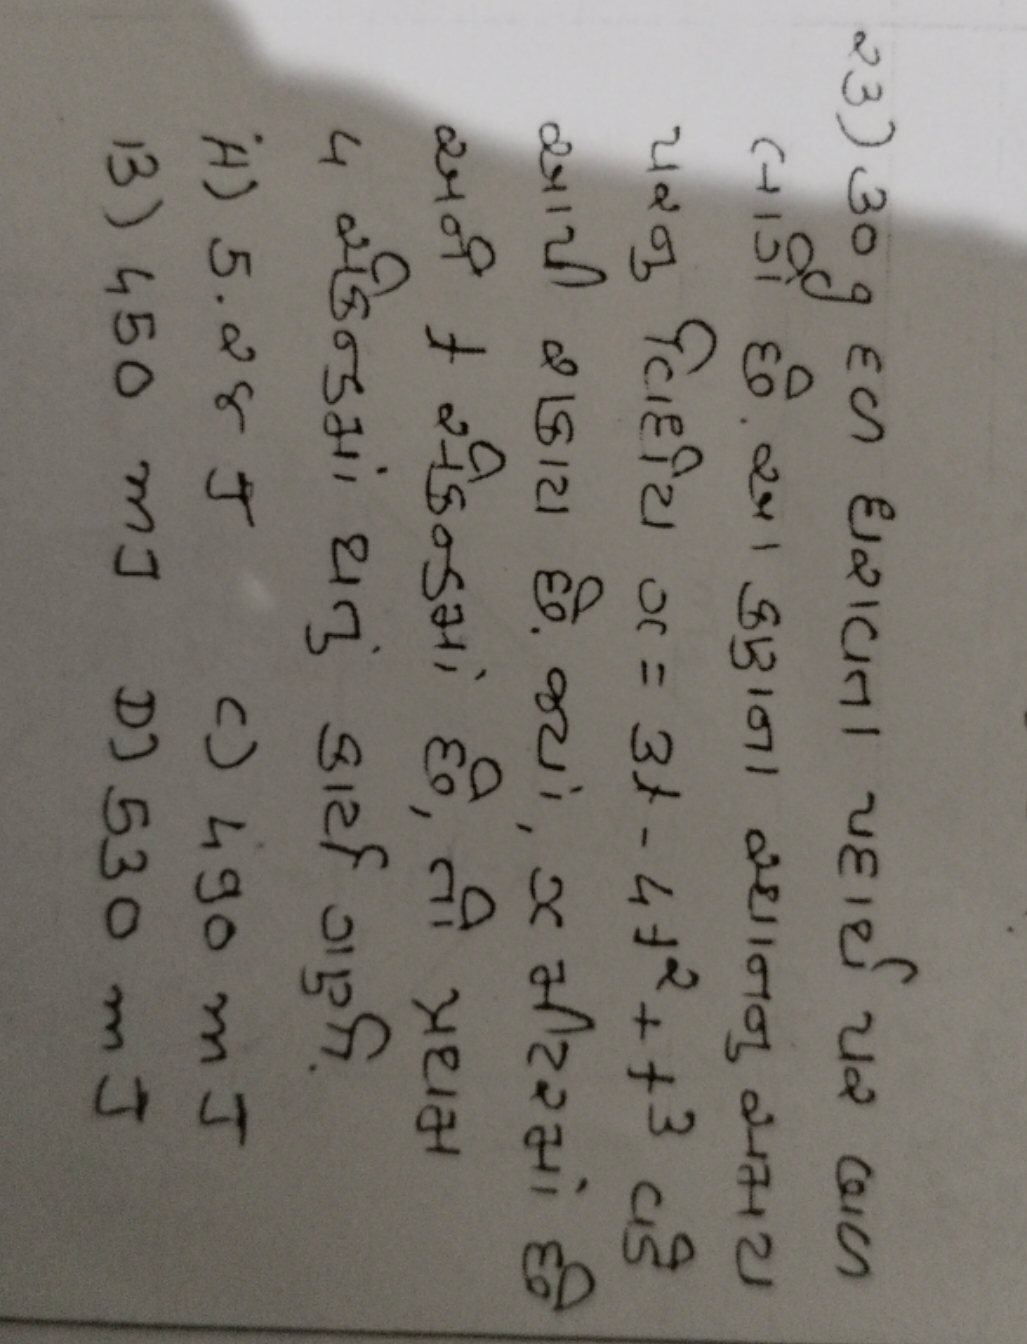 ૨૩) ૩૦ g દળ ધરાવતા પદાર્થ પર બળ
લાગે છે. આ કણના સ્થાનનુ સમય
પરનુ વિધેય x = 3t - 4t² + t³ વડે
આપી શકાય છે. જ્યાં, x મીટરમાં છે
અને t સેકન્ડમાં છે, તો પ્રથમ
4 સેકન્ડમાં થતું કાર્ય ગણો.
A) 5.28 J C) 490 mJ
B) 450 mJ D) 530 mJ